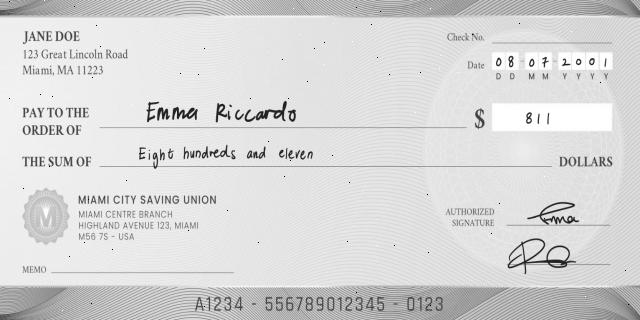 JANE DOE
123 Great Lincoln Road
Miami, MA 11223
Check No.
Date 08 07 2001
D D M M Y Y Y Y
PAY TO THE ORDER OF Emma Riccardo
$ 811
THE SUM OF Eight hundreds and eleven DOLLARS
M
MIAMI CITY SAVING UNION
MIAMI CENTRE BRANCH
HIGHLAND AVENUE 123, MIAMI
M56 7S - USA
AUTHORIZED SIGNATURE
MEMO
A1234 - 556789012345 - 0123